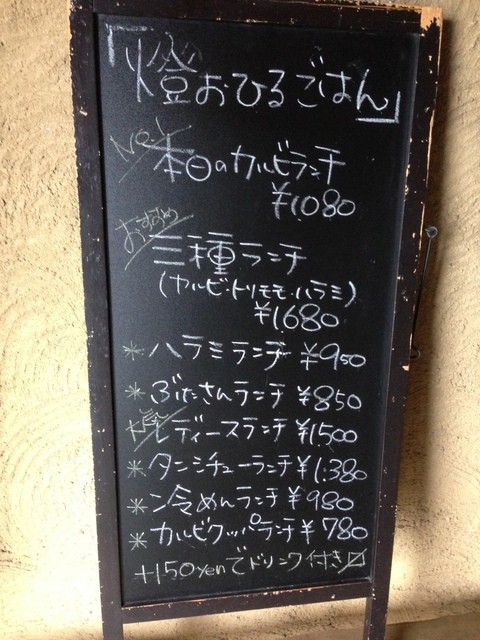 「燈おひるごはん」
No.1
本日のカルビランチ
¥1.080
おすすめ
三種ランチ
(カルビ・トリモモ・ハラミ)
¥1.680
* ハラミランチ ¥950
* ぶたさんランチ ¥850
レディースランチ ¥1500
* タンシチューランチ ¥1.380
* 冷めんランチ ¥980
* カルビクッパランチ ¥780
+150yenでドリンク付き